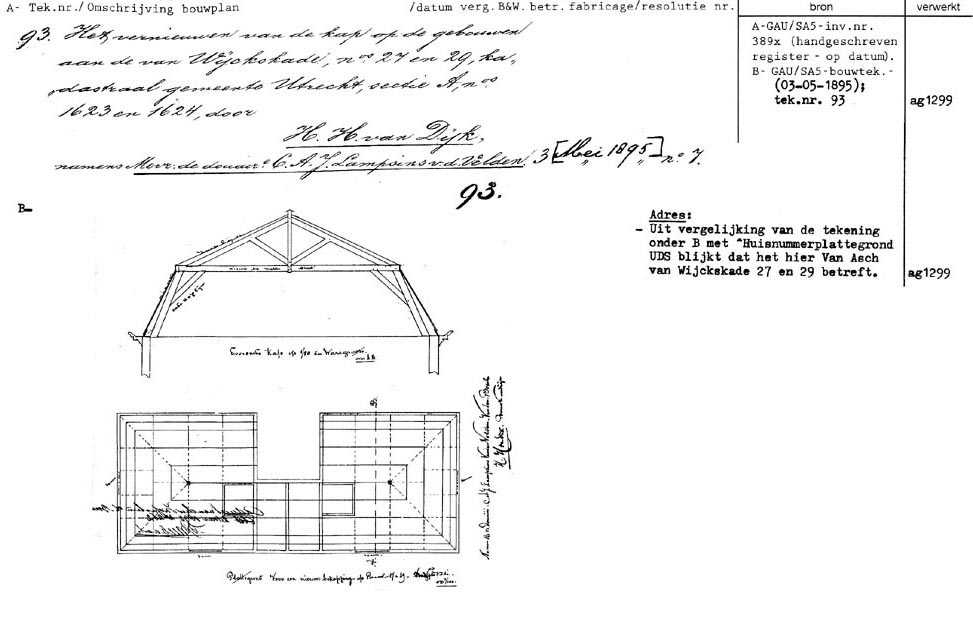 A- Tek.nr./Omschrijving bouwplan /datum verg.B&W. betr. fabricage/resolutie nr. bron verwerkt
93. Het vernieuwen van de kap op de gebouwen
aan de van Wijckskade, nos 27 en 29, ka,
dastraal gemeente Utrecht, sectie A, nos
1623 en 1624, door
H. H. van Dijk,
namens Mevr. de douair. C. A. J. Lampsins v. d. Velden. 3 [Mei 1895] no 7.
A-GAU/SA5-inv.nr.
389x (handgeschreven
register - op datum).
B- GAU/SA5-bouwtek.-
(03-05-1895);
tek.nr. 93 ag1299
93.
B-
Adres:
- Uit vergelijking van de tekening
onder B met "Huisnummerplattegrond
UDS blijkt dat het hier Van Asch
van Wijckskade 27 en 29 betreft. ag1299
kap op
voor een nieuwe bekapping op